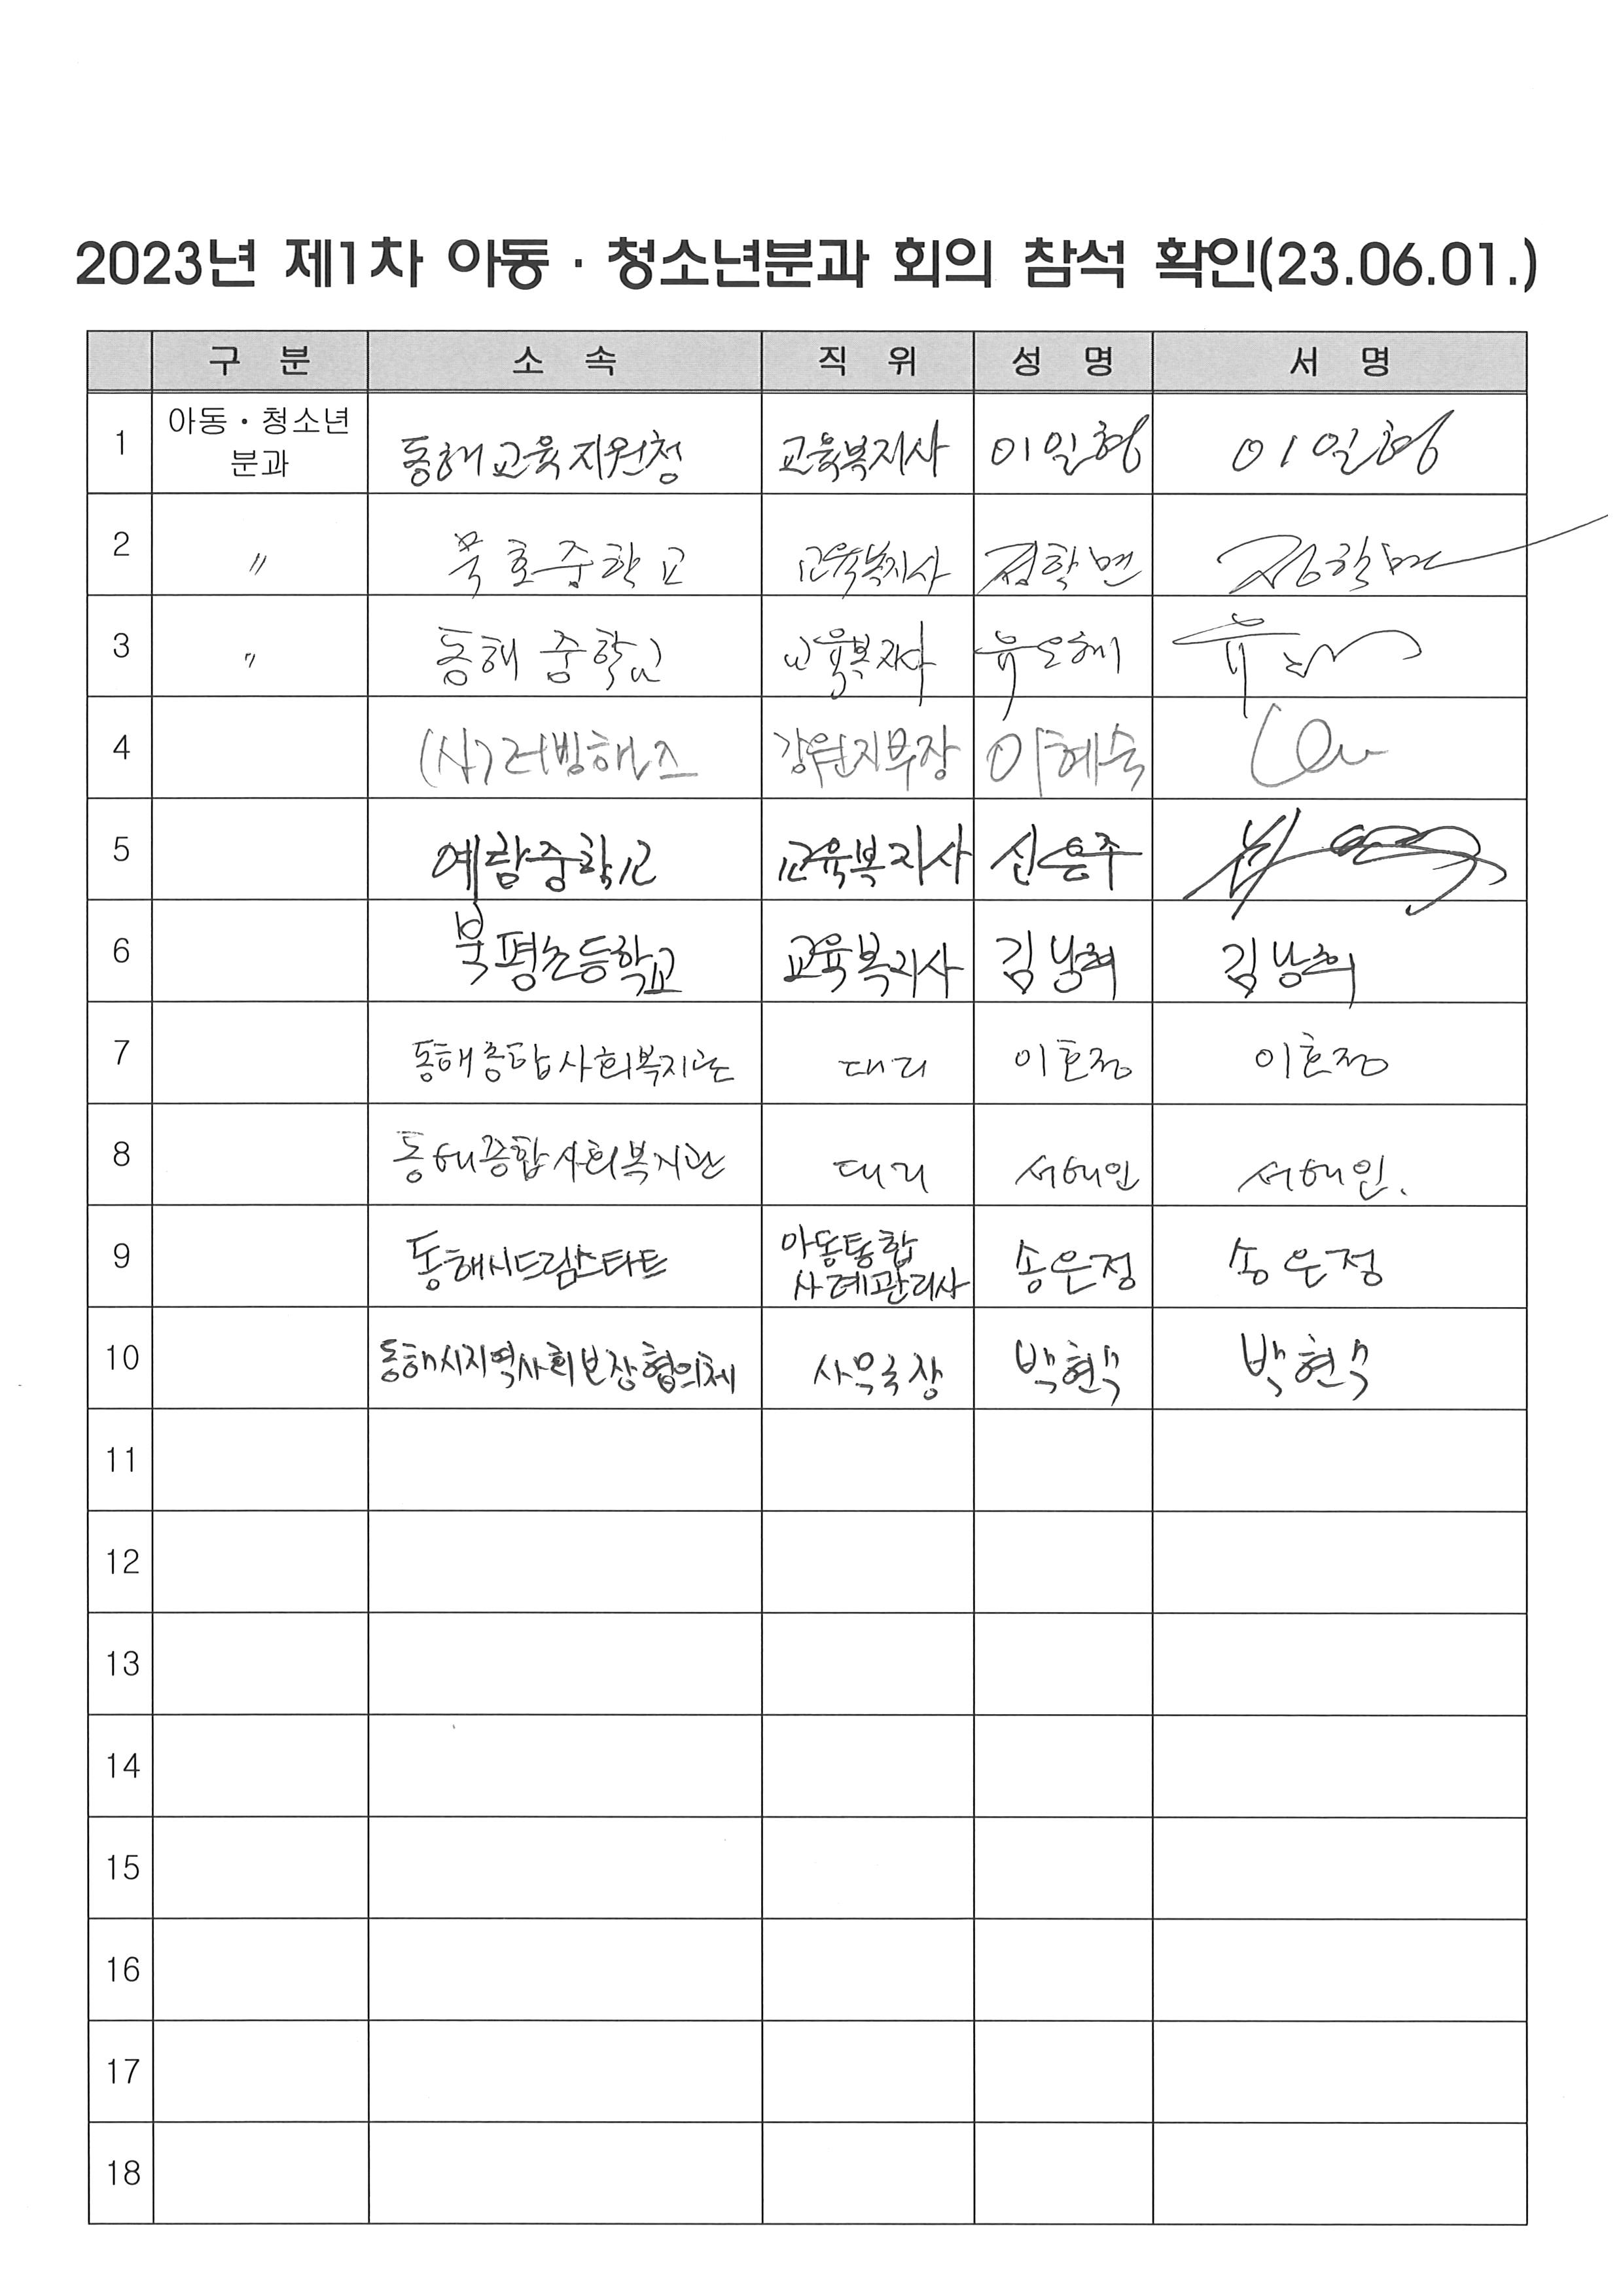 2023년 제1차 아동·청소년분과 회의 참석 확인(23.06.01.)
구 분 소 속 직 위 성 명 서 명
1 아동·청소년 분과 동해교육지원청 교육복지사 이일형 이일형
2 〃 묵호중학교 교육복지사
3 〃 동해중학교 교육복지사 유은혜
4 (사)러빙핸즈 강원지부장 이혜숙
5 예람중학교 교육복지사 신은주
6 북평초등학교 교육복지사 김남희 김남희
7 동해종합사회복지관 대리 이효정 이효정
8 동해종합사회복지관 대리 서해인 서해인.
9 동해시드림스타트 아동통합 사례관리사 송은정 송은정
10 동해시지역사회보장협의체 사무국장 박현숙 박현숙
11
12
13
14
15
16
17
18